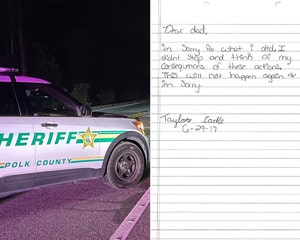 HERIFF
POLK COUNTY
Dear dad,
im Sorry for what i did. I
didnt stop and think of my
consequences of these actions.
This will not happen again &
im Sorry.
Taylor
6-29-17